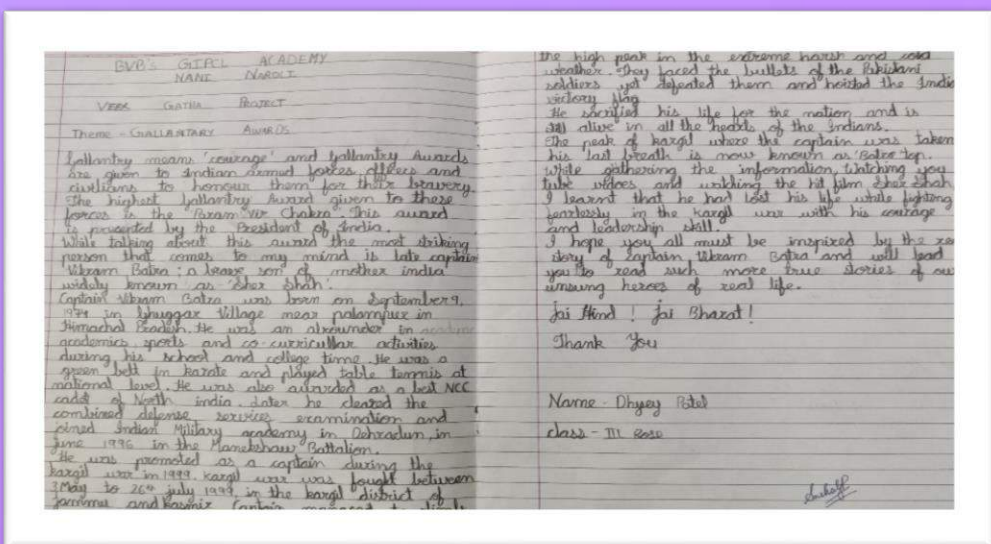 BVB's GIPCL ACADEMY
NANI NAROLI
VEER GATHA PROJECT
Theme - GALLANTARY AWARDS
Gallantry means 'courage' and Gallantry Awards
are given to Indian armed forces, officers and
civilians to honour them for their bravery.
The highest Gallantry Award given to these
forces is the Param Vir Chakra. This award
is presented by the President of India.
While talking about this award the most striking
person that comes to my mind is late captain
Vikram Batra : a brave son of mother india
widely known as 'Sher Shah'.
Captain Vikram Batra was born on September 9,
1974 in Ghuggar Village near palampur in
Himachal Pradesh. He was an allrounder in
academics, sports and co-curricullar activities
during his school and college time. He was a
green belt in karate and played table tennis at
national level. He was also awarded as a best NCC
cadet of North india. Later he cleared the
combined defense services examination and
joined Indian Military academy in Dehradun, in
June 1996 in the Manekshaw Battalion.
He was promoted as a captain during the
kargil war in 1999. kargil war was fought between
3 May to 26th july 1999, in the kargil district of
Jammu and Kasmir Captain managed to climb
the high peak in the extreme harsh and cold
weather. They faced the bullets of the Pakistani
soldiers yet defeated them and hoisted the India
victory flag
He sacrified his life for the nation and is
still alive in all the hearts of the indians.
The peak of kargil where the captain was taken
his last breath is now known as 'Batra top.
While gathering the information, watching you
tube vidoes and watching the hit film Sher Shah
I learnt that he had lost his life while fighting
fearlessly in the kargil war with his courage
and leadership skill.
I hope you all must be inspired by the rea
story of captain Vikram Batra and will lead
you to read such more true stories of ou
unsung heroes of real life.
Jai Hind ! Jai Bharat !
Thank You
Name - Dhyey Patel
class - III rose